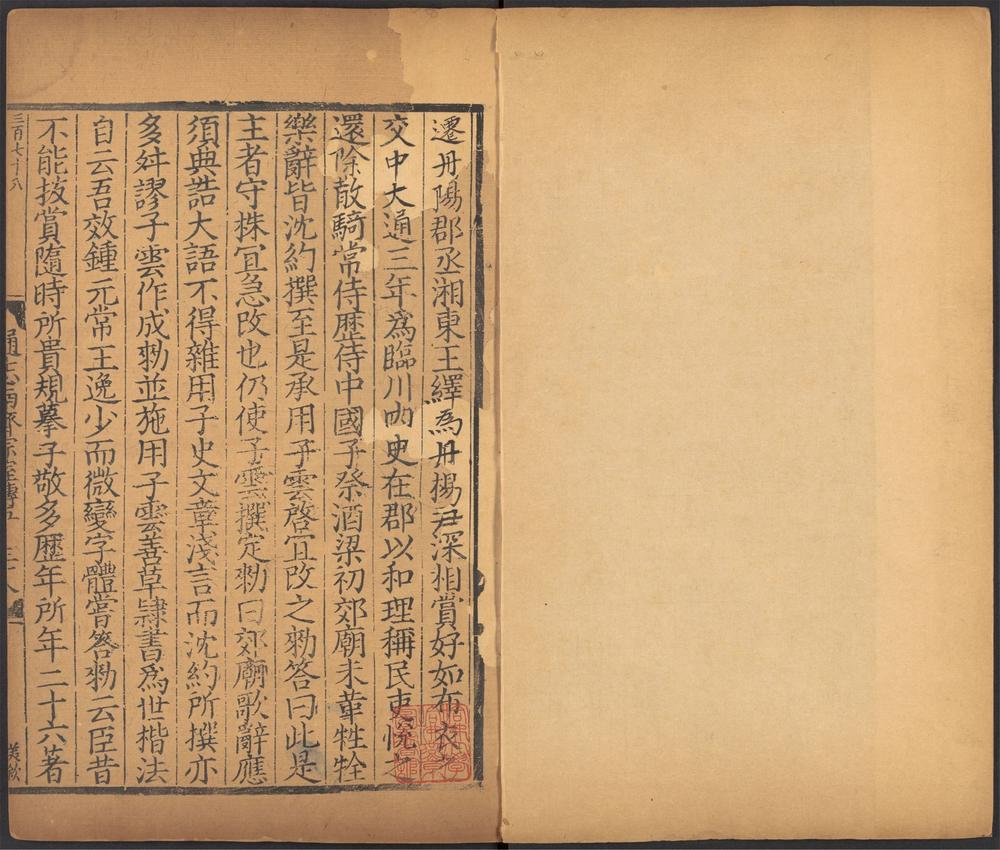 遷丹陽郡丞湘東王繹為丹揚尹深相賞好如布衣之
交中大通三年為臨川内史在郡以和理稱民吏恱之
還除散騎常侍歷侍中國子祭酒梁初郊廟未革牲牷
樂辭皆沈約撰至是承用子雲啓宜改之勑答曰此是
主者守株宜急改也仍使子雲撰定勑曰郊廟歌辭應
須典誥大語不得雜用子史文章淺言而沈約所撰亦
多舛謬子雲作成勑並施用子雲善草隷書為世楷法
自云吾效鍾元常王逸少而微變字體嘗答勑云臣昔
不能拔賞隨時所貴規摹子敬多歷年所年二十六著
三百七十八
通志
傳五